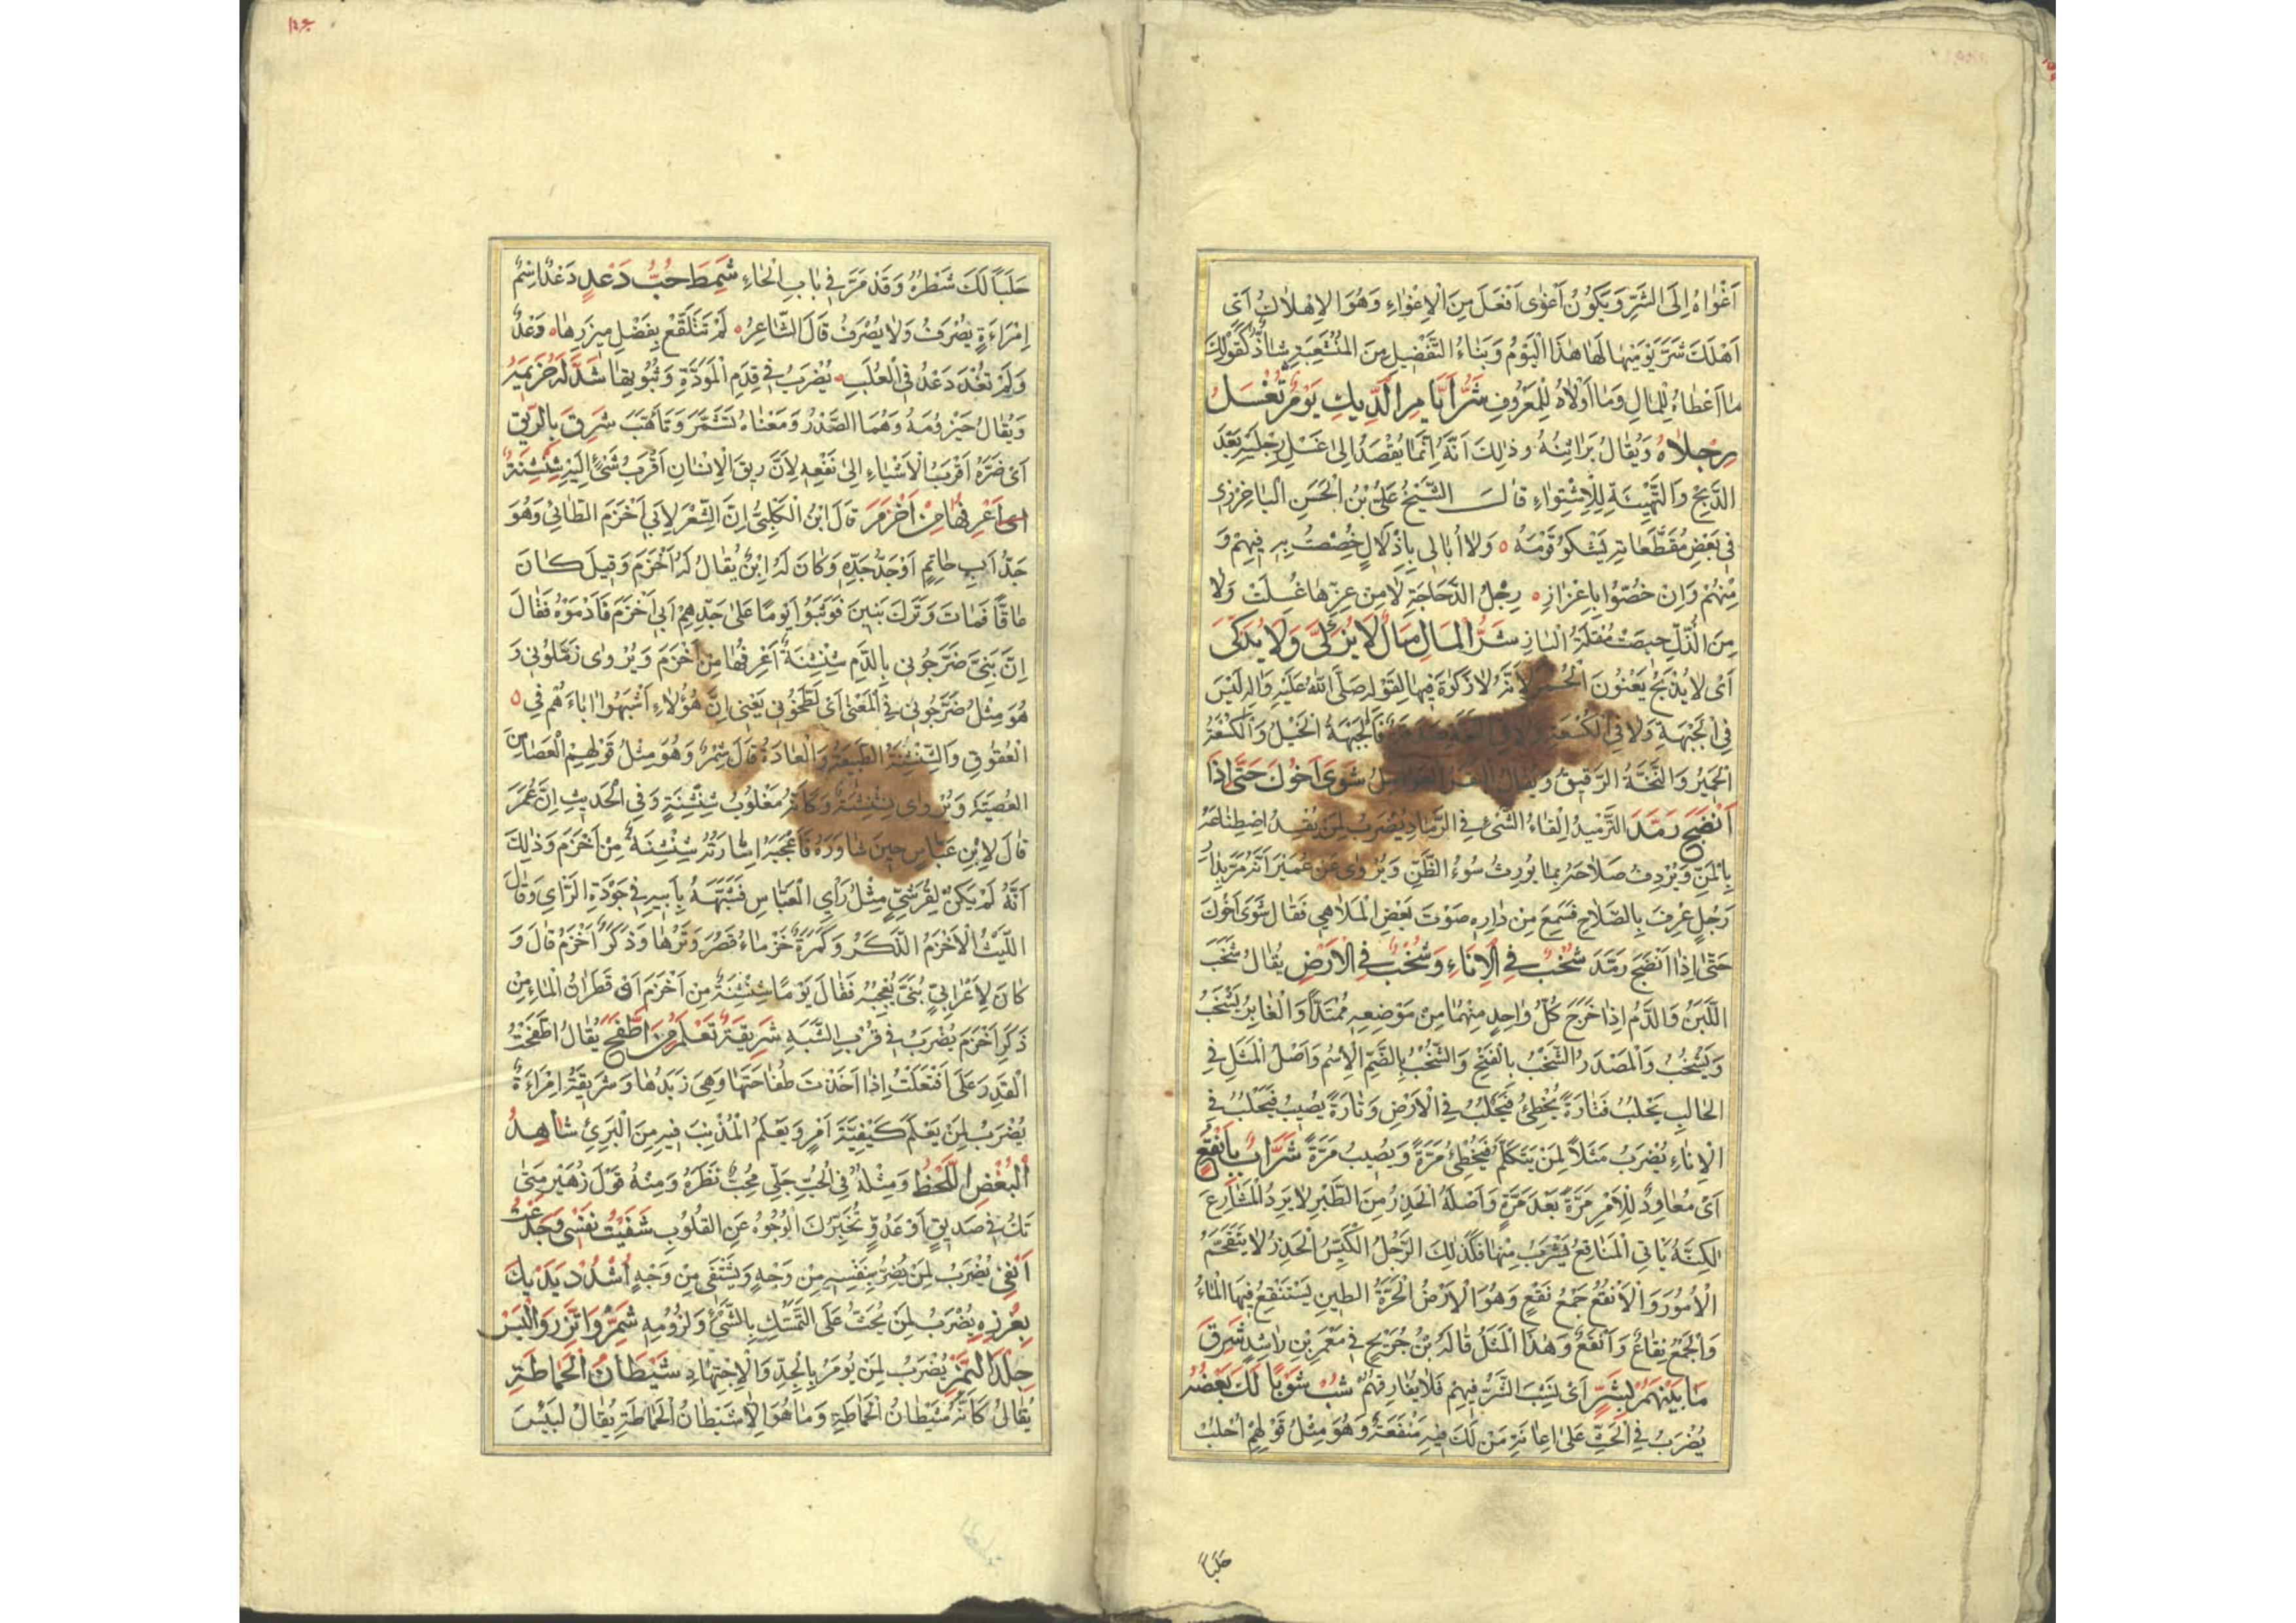 اَغْوَاهُ اِلَى الشَّرِّ وَيَكُونُ اَغْوٰى اَفْعَلَ مِنَ الْاِغْوَاءِ وَهُوَ الْاِهْلَاكُ اَىْ
اَهْلَكَ شَرَّ يَوْمَيْهَا لَهَا هٰذَا الْيَوْمُ وَبِنَاءُ التَّفْضِيلِ مِنَ الْمُنْشَعِبَةِ شَاذٌّ كَقَوْلِكَ
مَا اَعْطَاهُ لِلْمَالِ وَمَا اَوْلَاهُ لِلْمَعْرُوفِ شَرُّ اَيَّامِ الدِّيكِ يَوْمُ تُغْسَلُ
رِجْلَاهُ وَيُقَالُ بَرَاثِنُهُ وَذٰلِكَ اَنَّهُ اِنَّمَا يُقْصَدُ اِلٰى غَسْلِ رِجْلَيْهِ بَعْدَ
الذَّبْحِ وَالتَّهْيِئَةِ لِلْاِشْتِوَاءِ قَالَ الشَّيْخُ عَلِىُّ بْنُ الْحَسَنِ الْبَاخَرْزِى
فِى بَعْضِ مُقَطَّعَاتِهِ يَشْكُو قَوْمَهُ ه وَلَا اُبَالِى بِاِذْلَالٍ خُصِصْتُ بِهِ فِيهِمْ وَ
مِنْهُمْ وَاِنْ خُصُّوا بِاِعْزَازِ ه رِجْلُ الدَّجَاجَةِ لَا مِنْ عِزِّهَا غُسِلَتْ وَلَا
مِنَ الذُّلِّ حِيصَتْ مُقْلَةُ الْبَازِ شَرُّ الْمَالِ مَالٌ لَا يُزَكّٰى وَلَا يُذَكّٰى
اَىْ لَا يُذْبَحُ يَعْنُونَ الْحُمُرَ لِاَنَّهُ لَا زَكٰوةَ فِيهَا لِقَوْلِهِ صَلَّى اللهُ عَلَيْهِ وَاٰلِهِ لَيْسَ
فِى الْجَبْهَةِ وَلَا فِى الْكُسْعَةِ وَلَا فِى النَّخَّةِ صَدَقَةٌ فَالْجَبْهَةُ الْخَيْلُ وَالْكُسْعَةُ
الْحَمِيرُ وَالنَّخَّةُ الرَّقِيقُ وَيُقَالُ الْبَقَرُ الْعَوَامِلُ شَوٰى اَخُوكَ حَتّٰى اِذَا
اَنْضَجَ رَمَّدَ التَّرْمِيدُ اِلْقَاءُ الشَّىْءِ فِى الرَّمَادِ يُضْرَبُ لِمَنْ يُفْسِدُ اصْطِنَاعَهُ
بِالْمَنِّ وَيُرْدِفُ صَلَاحَهُ بِمَا يُورِثُ سُوءَ الظَّنِّ وَيُرْوٰى عَنْ عُمَرَ اَنَّهُ مَرَّ بِدَارِ
رَجُلٍ عُرِفَ بِالصَّلَاحِ فَسَمِعَ مِنْ دَارِهِ صَوْتَ بَعْضِ الْمَلَاهِى فَقَالَ شَوٰى اَخُوكَ
حَتّٰى اِذَا اَنْضَجَ رَمَّدَ شُخْبٌ فِى الْاِنَاءِ وَشُخْبٌ فِى الْاَرْضِ يُقَالُ شَخَبَ
اللَّبَنُ وَالدَّمُ اِذَا خَرَجَ كُلُّ وَاحِدٍ مِنْهُمَا مِنْ مَوْضِعِهِ مُمْتَدًّا وَالْغَابِرُ يَشْخَبُ
وَيَشْخُبُ وَالْمَصْدَرُ الشَّخْبُ بِالْفَتْحِ وَالشُّخْبُ بِالضَّمِّ الْاِسْمُ وَاَصْلُ الْمَثَلِ فِى
الْحَالِبِ يَحْلُبُ فَتَارَةً يُخْطِئُ فَيَحْلُبُ فِى الْاَرْضِ وَتَارَةً يُصِيبُ فَيَحْلُبُ فِى
الْاِنَاءِ يُضْرَبُ مَثَلًا لِمَنْ يَتَكَلَّمُ فَيُخْطِئُ مَرَّةً وَيُصِيبُ مَرَّةً شَرَّابٌ بِاَنْقُعٍ
اَىْ مُعَاوِدٌ لِلْاَمْرِ مَرَّةً بَعْدَ مَرَّةٍ وَاَصْلُهُ الْحَذِرُ مِنَ الطَّيْرِ لَا يَرِدُ الْمَشَارِعَ
لٰكِنَّهُ يَاْتِى الْمَنَاقِعَ يَشْرَبُ مِنْهَا فَكَذٰلِكَ الرَّجُلُ الْكَيِّسُ الْحَذِرُ لَا يَتَقَحَّمُ
الْاُمُورَ وَالْاَنْقُعُ جَمْعُ نَقْعٍ وَهُوَ الْاَرْضُ الْحَرَّةُ الطِّينِ يَسْتَنْقِعُ فِيهَا الْمَاءُ
وَالْجَمْعُ نِقَاعٌ وَاَنْقُعٌ وَهٰذَا الْمَثَلُ قَالَهُ بْنُ جُرَيْجٍ فِى مَعْمَرِ بْنِ رَاشِدٍ شَرِقَ
مَا بَيْنَهُمْ بِشَرٍّ اَىْ نَشِبَ الشَّرُّ فِيهِمْ فَلَا يُفَارِقُهُمْ شُبْ شَوْبًا لَكَ بَعْضُهُ
يُضْرَبُ فِى الْحَثِّ عَلٰى اِعَانَةِ مَنْ لَكَ فِيهِ مَنْفَعَةٌ وَهُوَ مِثْلُ قَوْلِهِمْ اُحْلُبْ
حَلَبًا
حَلَبًا لَكَ شَطْرُهُ وَقَدْ مَرَّ فِى بَابِ الْحَاءِ شَمِطَ حُبُّ دَعْدٍ دَعْدٌ اِسْمُ
اِمْرَاَةٍ يُصْرَفُ وَلَا يُصْرَفُ قَالَ الشَّاعِرُ ه لَمْ تَتَلَفَّعْ بِفَضْلِ مِيزَرِهَا ه دَعْدٌ
وَلَمْ تُغْدَ دَعْدُ فِى الْعُلَبِ ه يُضْرَبُ فِى قِدَمِ الْمَوَدَّةِ وَثُبُوتِهَا شَدَّ لَهُ حَزِيمَهُ
وَيُقَالُ حَيْزُومَهُ وَهُمَا الصَّدْرُ وَمَعْنَاهُ تَشَمَّرَ وَتَاَهَّبَ شَرِقَ بِالرِّيقِ
اَىْ ضَرَّهُ اَقْرَبُ الْاَشْيَاءِ اِلٰى نَفْعِهِ لِاَنَّ رِيقَ الْاِنْسَانِ اَقْرَبُ شَىْءٍ اِلَيْهِ شِنْشِنَةٌ
اَعْرِفُهَا مِنْ اَخْزَمَ قَالَ ابْنُ الْكَلْبِىِّ اِنَّ الشِّعْرَ لِاَبِى اَخْزَمَ الطَّائِى وَهُوَ
جَدُّ اَبِى حَاتِمٍ اَوْ جَدُّ جَدِّهِ وَكَانَ لَهُ اِبْنٌ يُقَالُ لَهُ اَخْزَمُ وَقِيلَ كَانَ
عَاقًّا فَمَاتَ وَتَرَكَ بَنِينَ فَوَثَبُوا يَوْمًا عَلٰى جَدِّهِمْ اَبِى اَخْزَمَ فَاَدْمَوْهُ فَقَالَ
اِنَّ بَنِىَّ ضَرَّجُونِى بِالدَّمِ شِنْشِنَةٌ اَعْرِفُهَا مِنْ اَخْزَمَ وَيُرْوٰى زَمَّلُونِى وَ
هُوَ مِثْلُ ضَرَّجُونِى فِى الْمَعْنٰى اَىْ لَطَّخُونِى يَعْنِى اِنَّ هٰؤُلَاءِ اَشْبَهُوا اٰبَاءَهُمْ فِى ه
الْعُقُوقِ وَالشِّنْشِنَةُ الطَّبِيعَةُ وَالْعَادَةُ قَالَ شِمْرٌ وَهُوَ مِثْلُ قَوْلِهِمُ الْعَصَا مِنَ
الْعُصَيَّةِ وَيُرْوٰى نِشْنِشَةٌ وَكَاَنَّهُ مَقْلُوبُ شِنْشِنَةٍ وَفِى الْحَدِيثِ اِنَّ عُمَرَ
قَالَ لِابْنِ عَبَّاسٍ حِينَ شَاوَرَهُ فَاَعْجَبَهُ اِشَارَتُهُ شِنْشِنَةٌ مِنْ اَخْزَمَ وَذٰلِكَ
اَنَّهُ لَمْ يَكُنْ لِقُرَشِىٍّ مِثْلُ رَاْىِ الْعَبَّاسِ فَشَبَّهَهُ بِاَبِيهِ فِى جَوْدَةِ الرَّاْىِ وَقَالَ
اللَّيْثُ الْاَخْزَمُ الذَّكَرُ وَكَمَرَةٌ خَزْمَاءُ قَصُرَ وَتَرُهَا وَذَكَرٌ اَخْزَمُ قَالَ وَ
كَانَ لِاَعْرَابِىٍّ بُنَىٌّ يُعْجِبُهُ فَقَالَ يَوْمًا شِنْشِنَةٌ مِنْ اَخْزَمَ اَىْ قَطَرَانُ الْمَاءِ مِنْ
ذَكَرِ اَخْزَمَ يُضْرَبُ فِى قُرْبِ الشَّبَهِ شَرِيقَةُ تَعْلَمُ مَنِ اطَّفَحَ يُقَالُ اطَّفَحْتُ
الْقِدْرَ عَلٰى اَفْتَعَلْتُ اِذَا اَخَذْتَ طُفَاحَتَهَا وَهِىَ زَبَدُهَا وَشَرِيقَةُ اِمْرَاَةٌ
يُضْرَبُ لِمَنْ يَعْلَمُ كَيْفِيَّةَ اَمْرٍ وَيَعْلَمُ الْمُذْنِبَ فِيهِ مِنَ الْبَرِىْءِ شَاهِدُ
الْبُغْضِ اللَّحْظُ وَمِثْلُهُ فِى الْحُبِّ جَلّٰى مُحِبٌّ نَظَرَهُ وَمِنْهُ قَوْلُ زُهَيْرٍ مَتٰى
تَكُ فِى صَدِيقٍ اَوْ عَدُوٍّ تُخَبِّرْكَ الْوُجُوهُ عَنِ الْقُلُوبِ شَفَيْتُ نَفْسِى وَجَدَعْتُ
اَنْفِى يُضْرَبُ لِمَنْ يَضُرُّ بِنَفْسِهِ مِنْ وَجْهٍ وَيَشْتَفِى مِنْ وَجْهٍ اُشْدُدْ يَدَيْكَ
بِغَرْزِهِ يُضْرَبُ لِمَنْ يُحَثُّ عَلَى التَّمَسُّكِ بِالشَّىْءِ وَلُزُومِهِ شَمِّرْ وَاتَّزِرْ وَالْبَسْ
جِلْدَ النَّمِرِ يُضْرَبُ لِمَنْ يُؤْمَرُ بِالْجِدِّ وَالْاِجْتِهَادِ شَيْطَانُ الْحَمَاطَةِ
يُقَالُ كَاَنَّهُ شَيْطَانُ الْحَمَاطَةِ وَمَا هُوَ اِلَّا شَيْطَانُ الْحَمَاطَةِ يُقَالُ لِيَبِيسَ